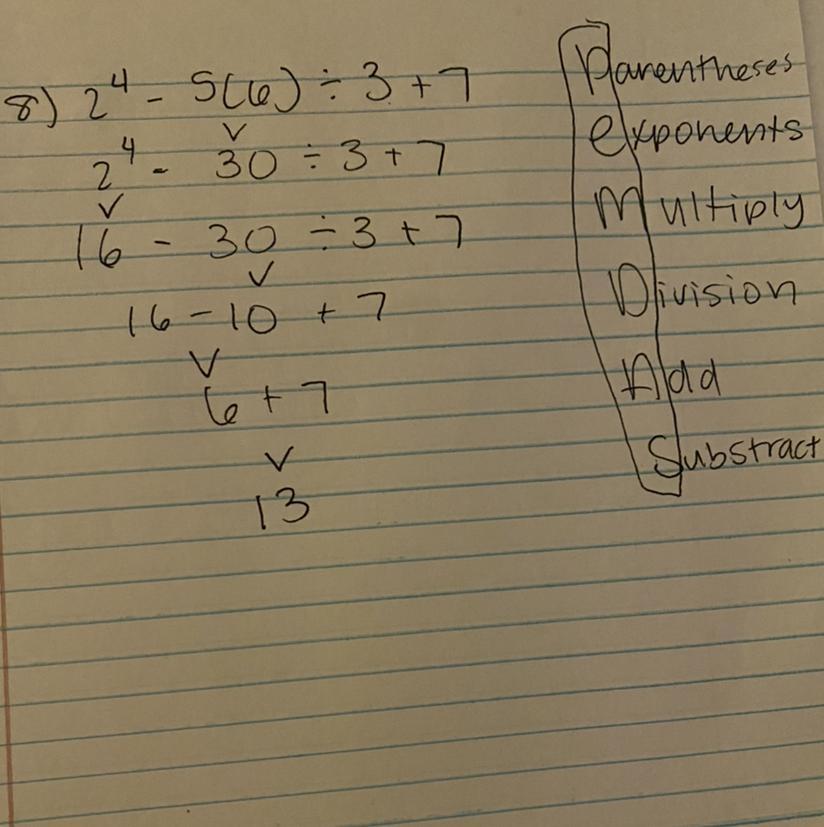 8) 2⁴ - 5(6) ÷ 3 + 7
2⁴ - 30 ÷ 3 + 7
16 - 30 ÷ 3 + 7
16 - 10 + 7
6 + 7
13
Parentheses
exponents
Multiply
Division
Add
Substract